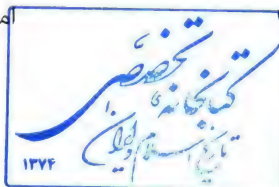 ام
کتابخانه تخصصی
تاریخ اسلام و ایران
۱۳۷۴